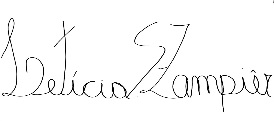 Letícia Zampiêr